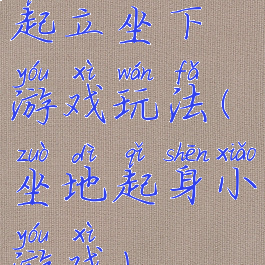 起立坐下
yóu xì wán fǎ
游戏玩法(
zuò dì qǐ shēn xiǎo
坐地起身小
yóu xì
游戏)